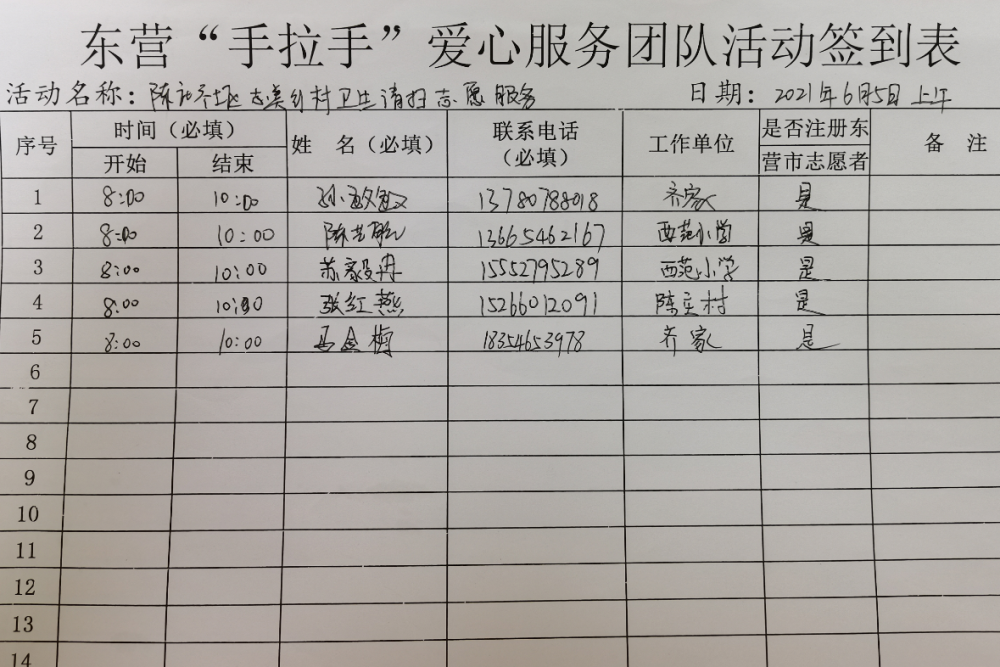 东营“手拉手”爱心服务团队活动签到表
活动名称：陈庄社区志美乡村卫生清扫志愿服务 日期：2021年6月5日上午
序号 时间（必填） 姓 名（必填） 联系电话（必填） 工作单位 是否注册东营市志愿者 备 注
开始 结束
1 8:00 10:00 孙敏敏 13780788018 齐家 是
2 8:00 10:00 陈 13665462167 西范小学 是
3 8:00 10:00 苏家毅冉 15552795289 西范小学 是
4 8:00 10:00 张红燕 15266012091 陈庄村 是
5 8:00 10:00 马金梅 18354653978 齐家 是
6
7
8
9
10
11
12
13
14